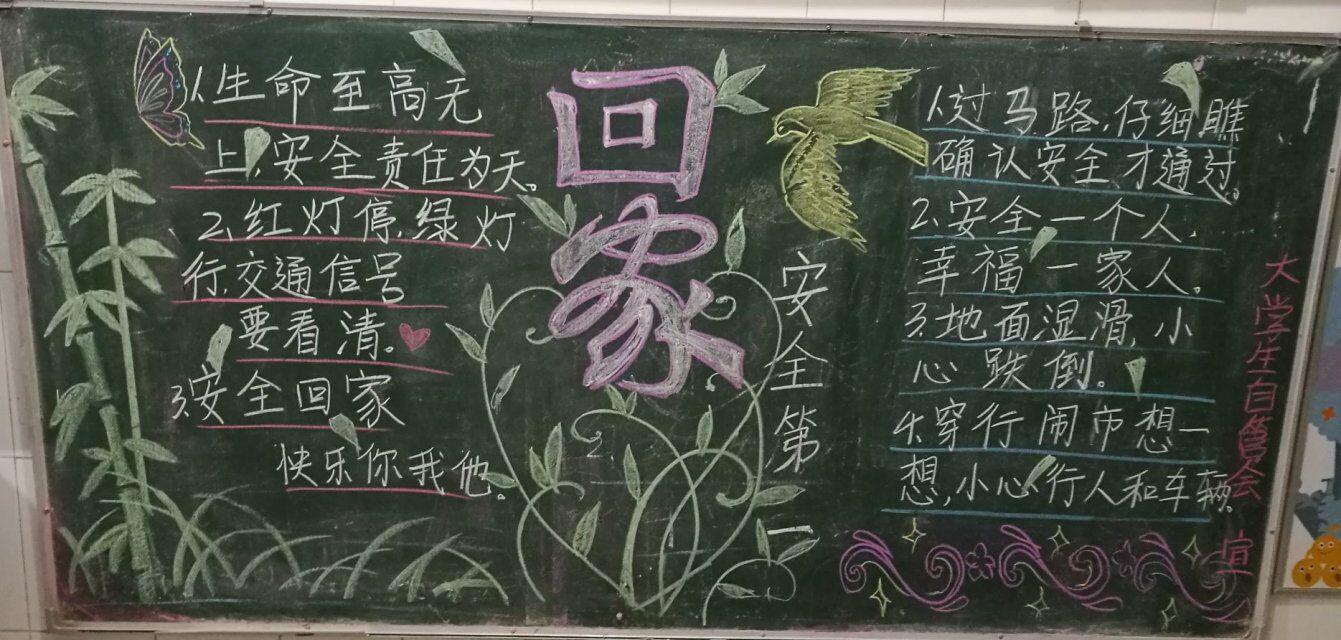 1、生命至高无
上,安全责任为天。
2、红灯停,绿灯
行,交通信号
要看清。
3、安全回家
快乐你我他。
回家
安全第一
1、过马路,仔细瞧
确认安全,才通过。
2、安全一个人,
幸福一家人。
3、地面湿滑,小
心跌倒。
4、穿行闹市想一
想,小心行人和车辆。
大学生自管会 宣